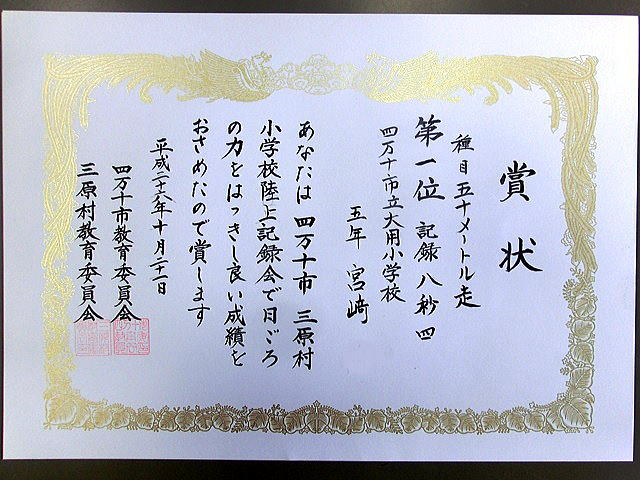 賞状
種目 五十メートル走
第一位 記録 八秒四
四万十市立大用小学校
五年 宮﨑
あなたは 四万十市 三原村
小学校陸上記録会で日ごろ
の力をはっきし良い成績を
おさめたので賞します
平成二十六年十月二十一日
四万十市教育委員会
三原村教育委員会